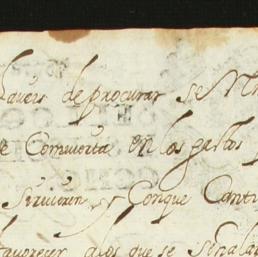 haveis de procurar se
e Comvierta en los gastos
Sirvieren y Conque Canti
favorecer a los que se señala